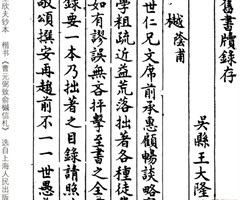 舊書牘錄存
吳縣王大隆
樾蔭甫
世仁兄文席前承惠顧暢談略
學粗疏近益荒落拙著各種徒
如有謬誤無吝抨擊至書之全
錄要一本乃拙著之目錄請照
敬頌撰安再趨前不一一世愚
欣夫钞本 楷书《曹元弼致俞樾信札》 选自上海人民出版